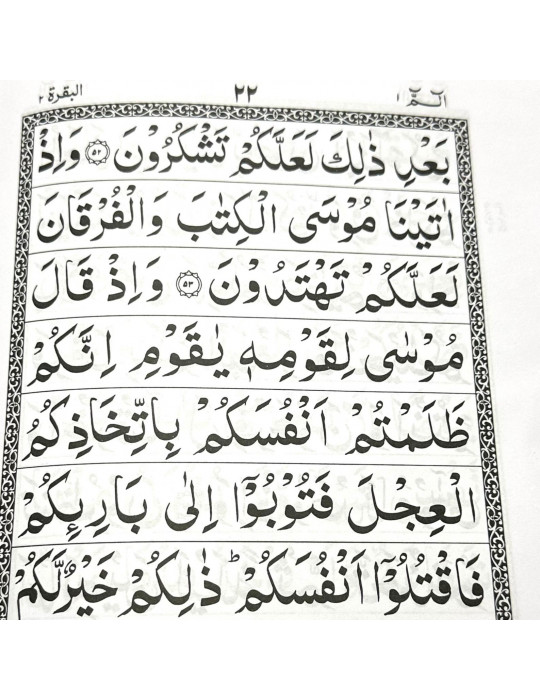 الٓمّٓ ١ ٢٢ البقرة ٢
بَعْدِ ذٰلِكَ لَعَلَّكُمْ تَشْكُرُوْنَ ۝٥٢ وَاِذْ
اٰتَيْنَا مُوْسَى الْكِتٰبَ وَالْفُرْقَانَ
لَعَلَّكُمْ تَهْتَدُوْنَ ۝٥٣ وَاِذْ قَالَ
مُوْسٰى لِقَوْمِهٖ يٰقَوْمِ اِنَّكُمْ
ظَلَمْتُمْ اَنْفُسَكُمْ بِاتِّخَاذِكُمُ
الْعِجْلَ فَتُوْبُوْٓا اِلٰى بَارِىِٕكُمْ
فَاقْتُلُوْٓا اَنْفُسَكُمْ ؕ ذٰلِكُمْ خَيْرٌ لَّكُمْ